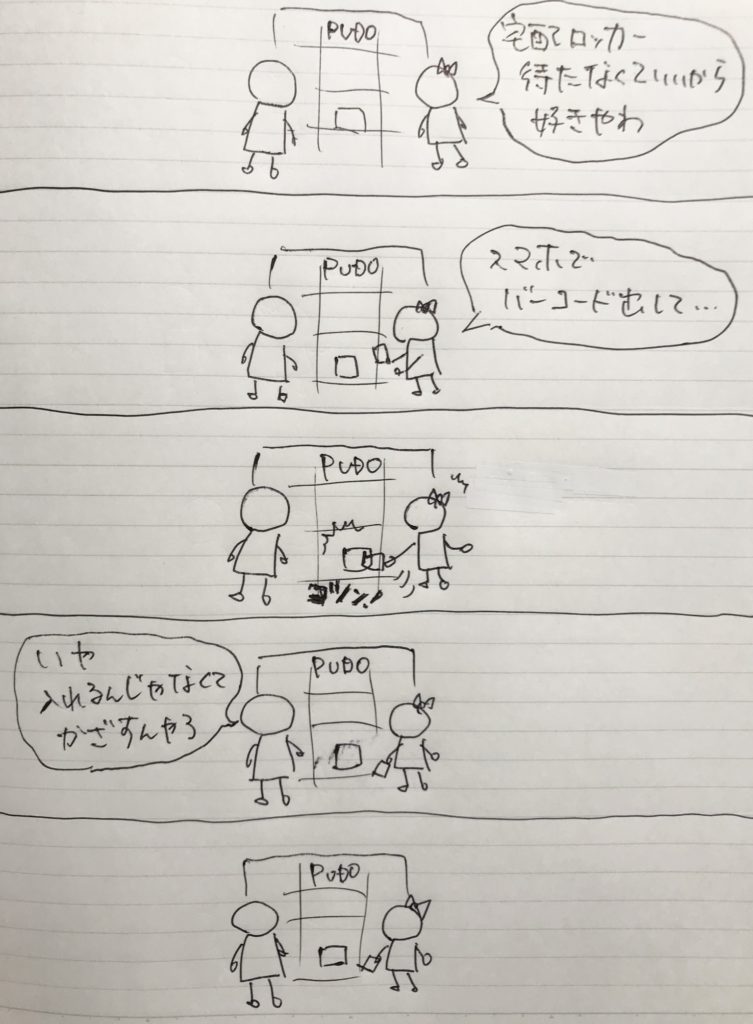 PUDO
宅配ロッカー
待たなくていいから
好きやわ
PUDO
スマホで
バーコード出して…
PUDO
PUDO
いや
入れるんじゃなくて
かざすんやろ
PUDO